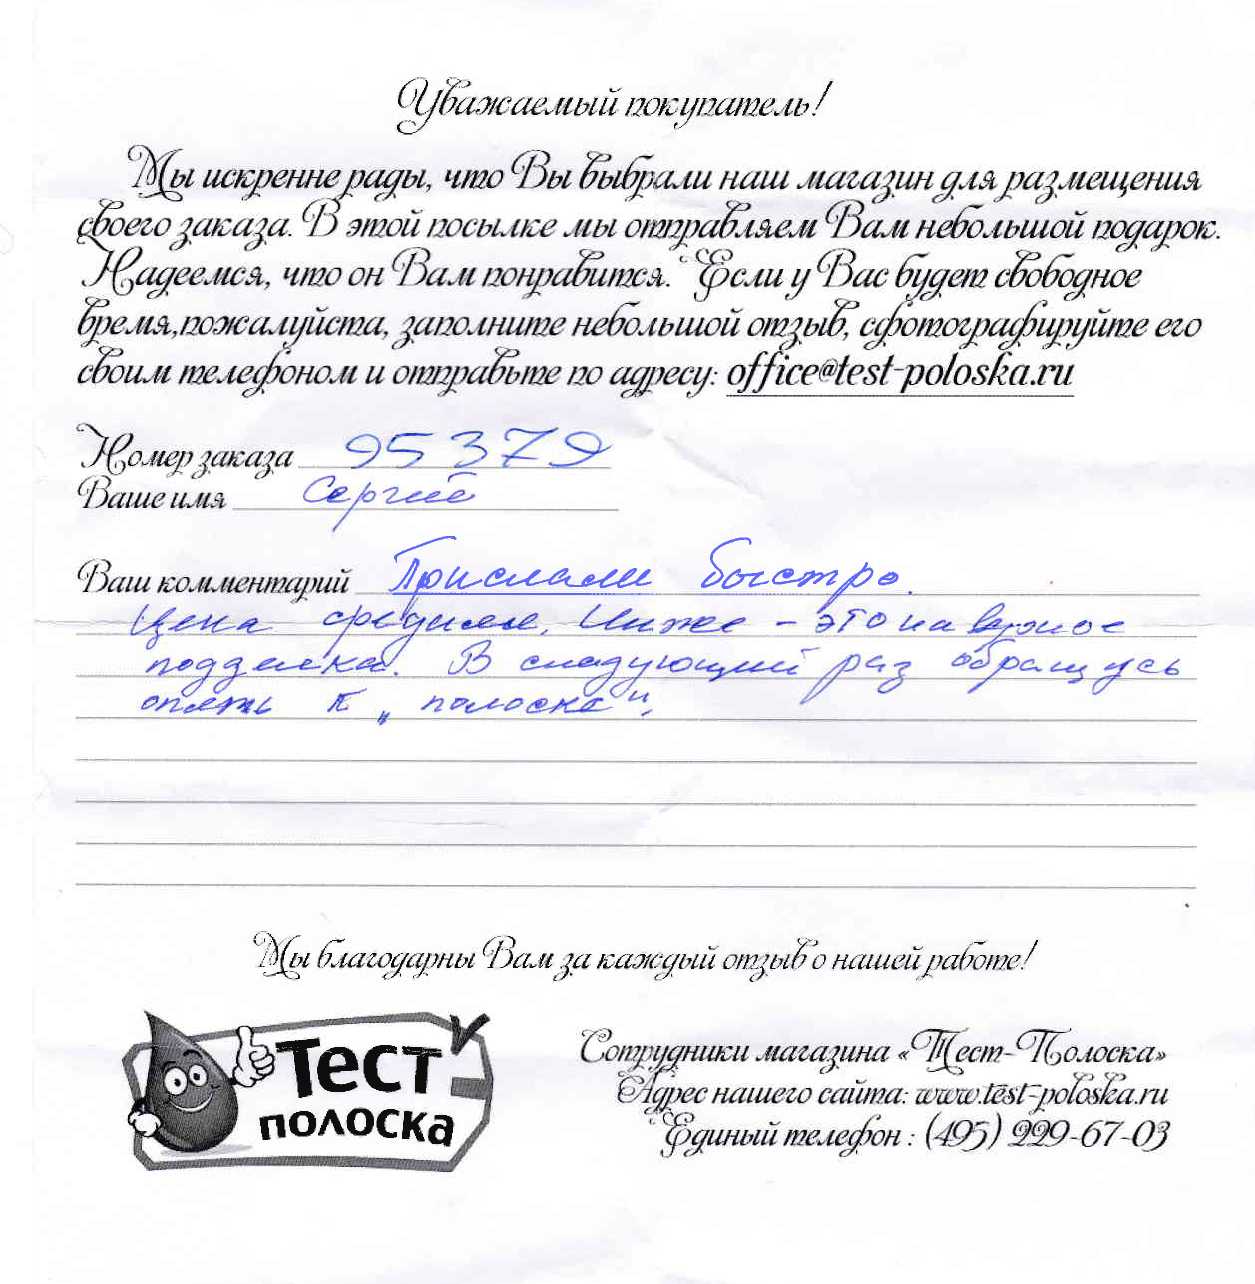 Уважаемый покупатель!
Мы искренне рады, что Вы выбрали наш магазин для размещения
своего заказа. В этой посылке мы отправляем Вам небольшой подарок.
Надеемся, что он Вам понравится. Если у Вас будет свободное
время,пожалуйста, заполните небольшой отзыв, сфотографируйте его
своим телефоном и отправьте по адресу: office@test-poloska.ru
Номер заказа 95379
Ваше имя Сергей
Ваш комментарий Прислали быстро.
Цена средняя. Ниже - это наверное
подделка. В следующий раз обращусь
опять к "полоске".
Мы благодарны Вам за каждый отзыв о нашей работе!
Тест
полоска
Сотрудники магазина «Тест-Полоска»
Адрес нашего сайта: www.test-poloska.ru
Единый телефон : (495) 229-67-03